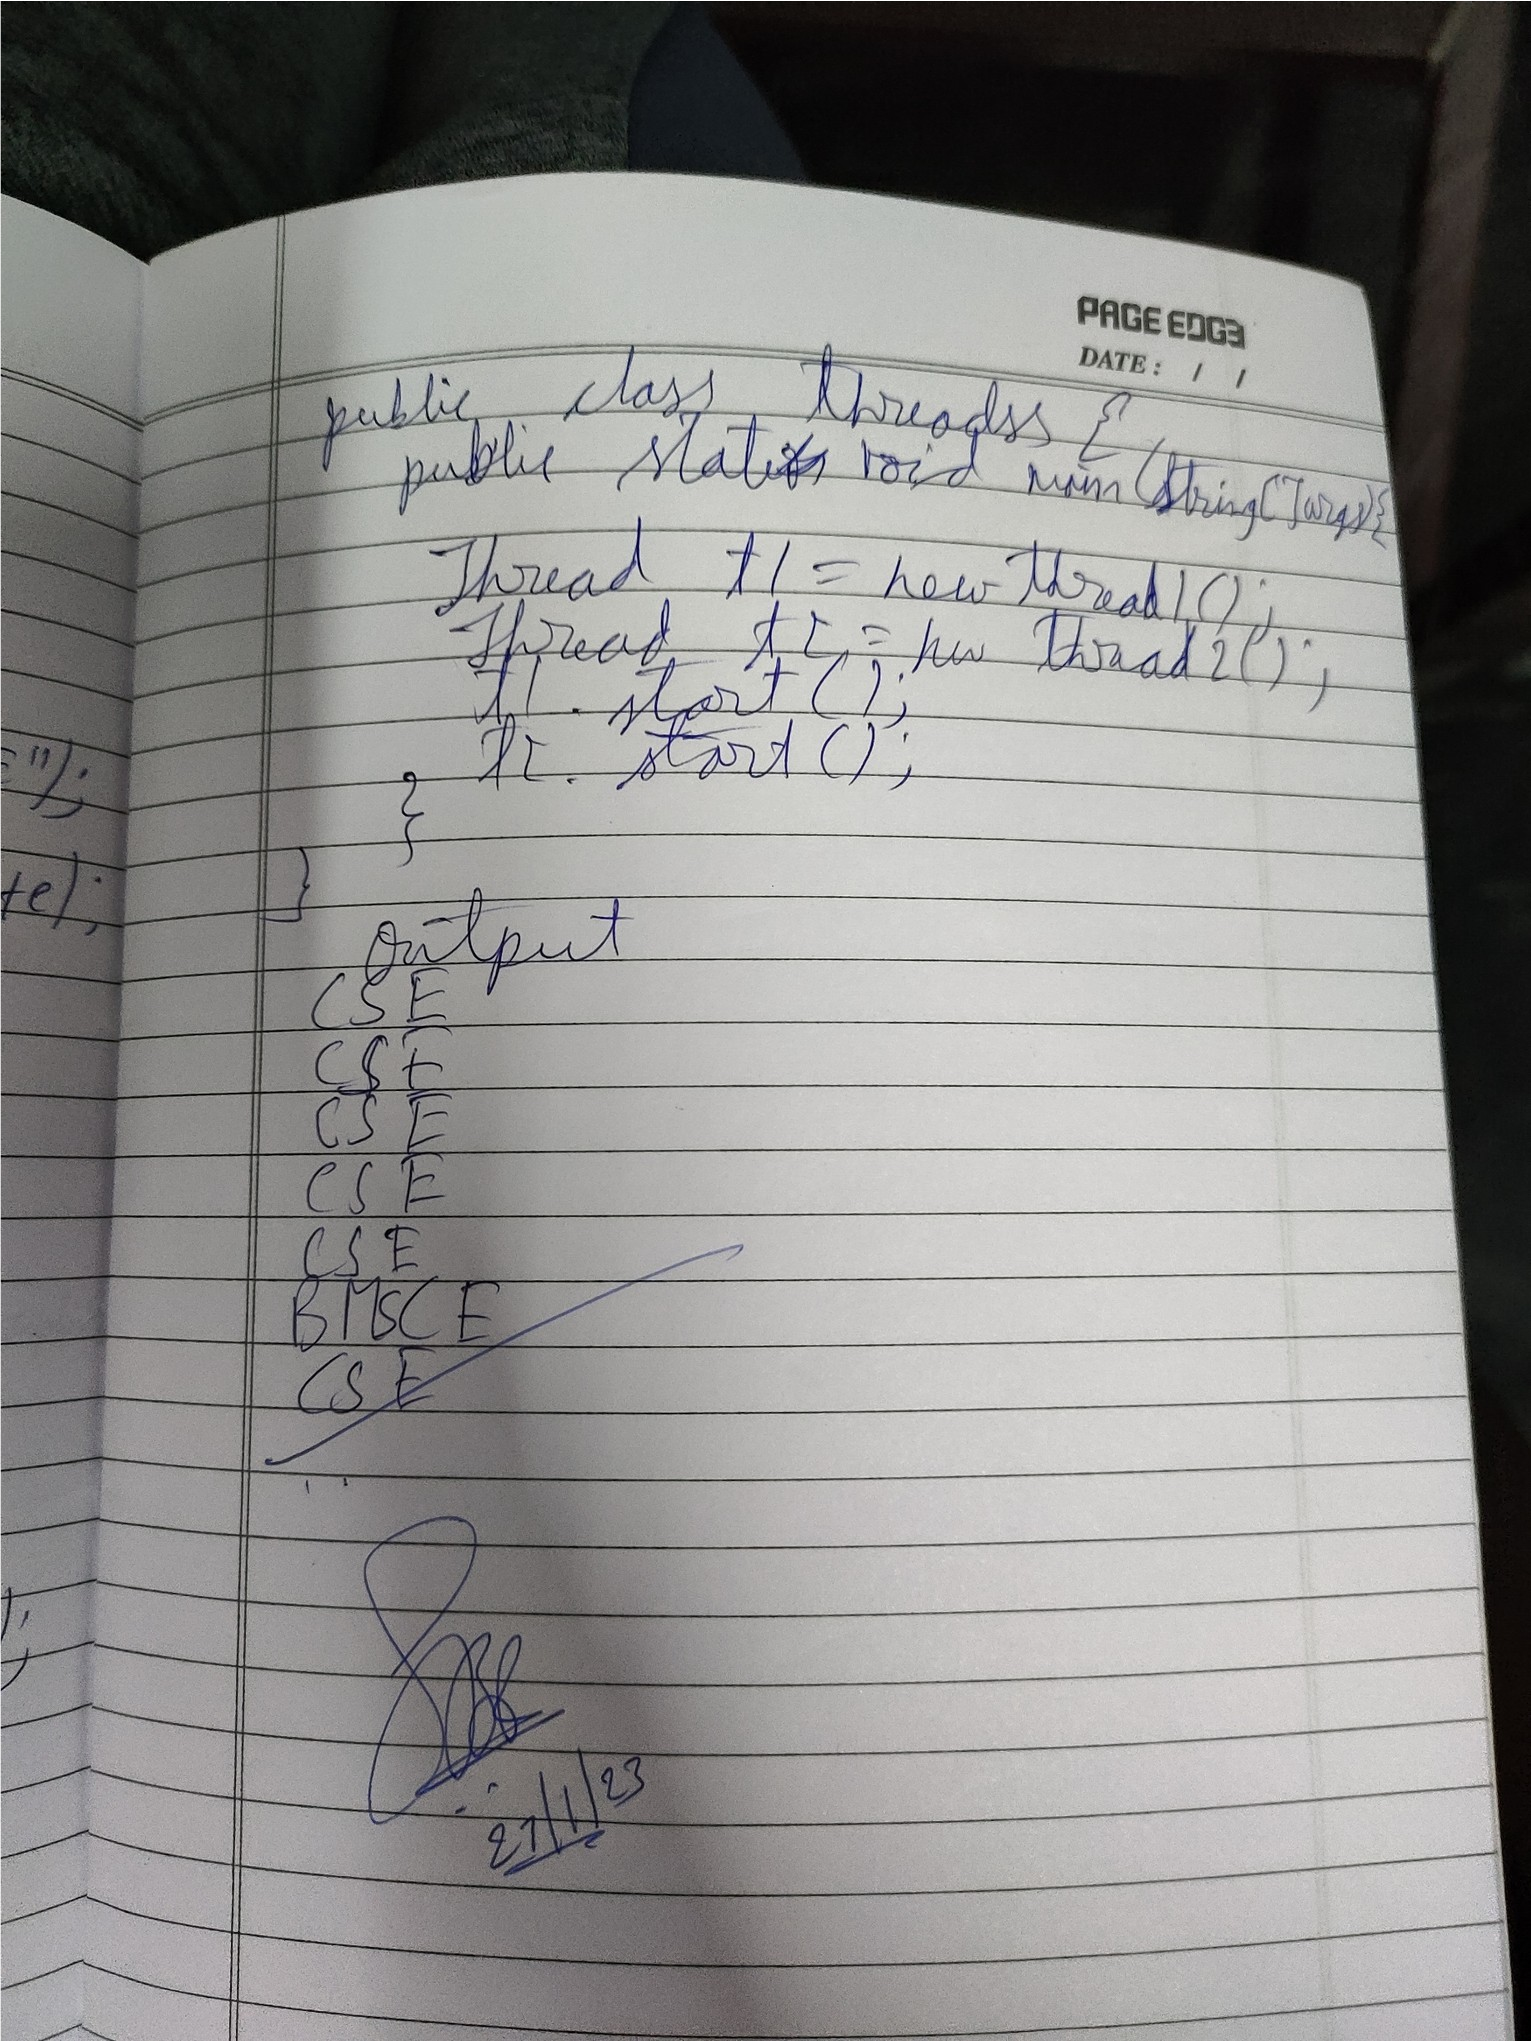 PAGE EDGE
DATE: / /
public class threadss {
public static void main (String[] args) {
Thread t1 = new thread1();
Thread t2 = new thread2();
t1. start();
t2. start();
}
}
output
CSE
CSE
CSE
CSE
CSE
BMSCE
CSE
27/1/23
=");
te);
);